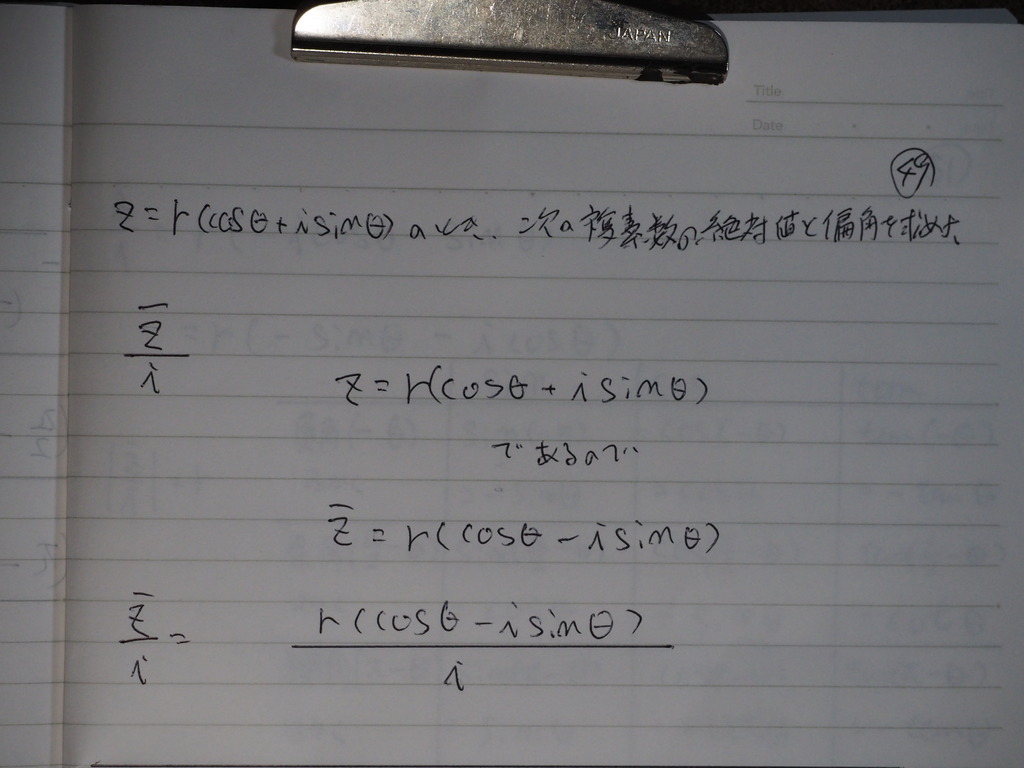 JAPAN
Title
Date
49
z=r(cosθ+isinθ)のとき、次の複素数の絶対値と偏角を求めよ
z̄/i
z=r(cosθ+isinθ)
であるので
z̄=r(cosθ-isinθ)
z̄/i = r(cosθ-isinθ)/i